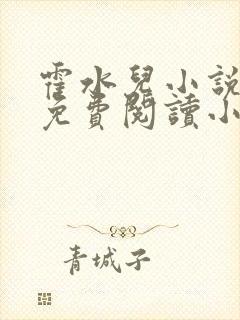 霍水兒小説
免費閱讀小
青城子